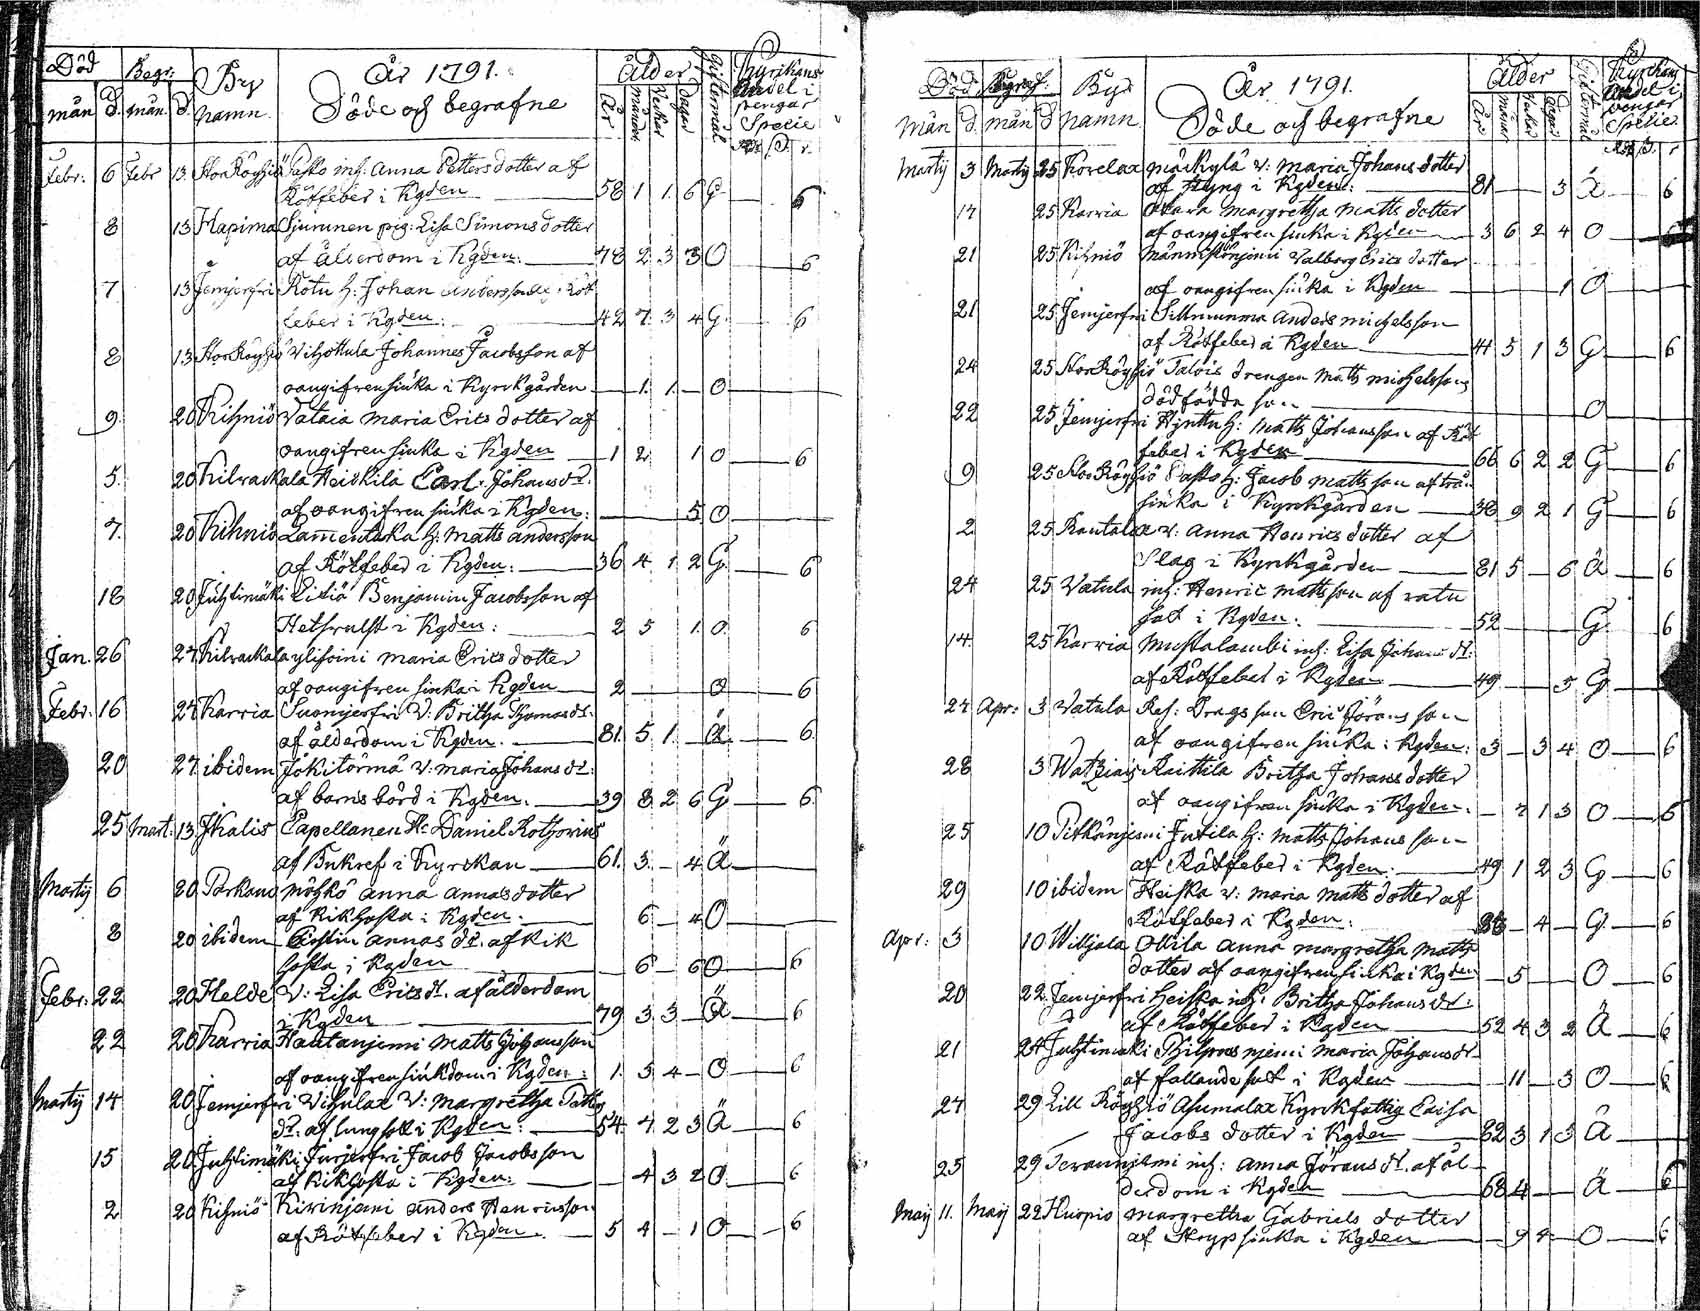 Död Begr: By År 1791. Ålder Giftermål Kyrkans
mån d. mån. d. namn. Döde och begrafne År månar Veckor dagar andel i
pengar
Specie
Febr: 6 Febr 13. StorRöyhiö Pasko inh: Anna Petters dotter af
Rötfeber i Kgden 58 1 1. 6 G 6
8 13 Hapima Sjuminen pig: Lisa Simons dotter
af ålderdom i Kgden. 78 2 3 3 O 6
7 13 Jemjerfri Kotu h: Johan Andersson af Röt
feber i Kgden. 42 7 3 4 G. 6
8 13 StorRöyhiö Johannes Jacobsson af
oangifven siuka i Kyrkgården 1. 1. O
9 20 Kihniö Vataia Maria Erics dotter af
oangifven siuka i Kgden 1 2 1 O 6
5. 20 Kilvackala Heickilä Carl. Johans dr.
af oangifven siuka i Kgden: 5 O
7. 20 Kihniö h: Matts Andersson
af Rötfeber i Kgden: 36 4 1 2 G. 6
18 20 Juhtimäki Benjamin Jacobsson af
i Kgden: 2 5 1. O 6
Jan. 26 27 Kilvackala ylisoini Maria Erics dotter
af oangifven siuka i Kgden 2 O 6
Febr: 16 27 Karvia Suomjerfri V: Britha Thomas dr.
af ålderdom i Kgden. 81. 5 1. Ä 6
20 27 ibidem Jokitörmä V: Maria Johans dr:
af barnsbörd i Kgden. 39 8 2 6 G 6
25 Mart: 13 Ikalis Capellanen Hr Daniel Rothovius
af i Kyrckan 61. 3. 4 Ä
Martij 6 20 Parkano Anna Annas dotter
af Kikhosta i Kgden. 6 4 O
8 20 ibidem Annas dr. af Kik
hosta i Kgden 6 6 O 6
Febr: 22 20 Helde V: Lisa Erics dr. af ålderdom
i Kgden 79 3 3 Ä 6
22 20 Karvia Hautanjemi Matts Johansson
af oangifven siukdom i Kgden: 1. 3 4 O 6
Martij 14 20 Jemjerfri V: Margretha
dr. af lungsot i Kgden. 54. 7 2 3 Ä 6
15 20 Juhtimäki Jurjerfri Jacob Jacobsson
af Kikhosta i Kgden. 4 3 2 O 6
2 20 Kihniö Kivinjemi Anders Henricsson
af Rötfeber i Kgden. 5 4 1 O 6
Död Begraf: By År 1791. Ålder Giftermål Kyrkans
Mån d. mån d namn Döde och begrafne År månar Veckor dagar andel i
pengar
Specie
Martij 3 Martij 25 Kovelax mäkylä V: Maria Johans dotter
af Styng i Kgden: 81 3 Ä 6
17 25 Karvia Margretha Matts dotter
af oangifven siuka i Kgden 3 6 2 4 O
21 25 Kihniö Valborg Erics dotter
af oangifven siuka i Kgden 1 O
21 25 Jemjerfri Anders Michelsson
af Rötfeber i Kgden 41 5 1 3 G 6
24 25 StorRöyhiö drengen Matts Michelssons
dödfödde son O
22 25 Jemjerfri h: Matts Johansson af Röt
feber i Kgden 66 6 2 2 G 6
9 25 StorRöyhiö Pasko h: Jacob Mattsson af
siuka i Kyrkgården 38 9 2 1 G 6
2 25 Kantala v: Anna Henrics dotter af
Slag i Kyrkgården 81 5 6 Ä 6
24 25 Vatula inh: Henric Mattsson af
i Kgden. 52 G. 6
14. 25 Karvia Mustalambi inh: Lisa Johans dr.
af Rötfeber i Kgden 49 5 G 6
27 Apr: 3 Vatula Eric Jöransson
af oangifven siuka i Kgden. 3 3 4 O 6
28 3 Raittila Britha Johans dotter
af oangifven siuka i Kgden. 7 1 3 O 6
25 10 Pitkänjemi Jutila h: Matts Johansson
af Rötfeber i Kgden. 49 1 2 3 G 6
29 10 ibidem Heiska v: Maria Matts dotter af
Rötfeber i Kgden. 4 G 6
Apr: 3 10 Wiljala Ollila Anna Margretha Matts
dotter af oangifven siuka i Kgden 5 O 6
20 22 Jemjerfri Heiska inh: Britha Johans dr:
af Rötfeber i Kgden 52 4 3 2 Ä 6
21 24 Juhtimäki Maria Johans dr
af fallande sot i Kgden 11 3 O 6
27 29 Lill Röyhiö Asumalax Kyrkfattig Caisa
Jacobs dotter i Kgden 82 3 1 3 Ä
25 29 inh: Anna Jörans dr. af ål
derdom i Kgden 68 4 Ä 6
Maij 11. Maij 22 Kurpis Margretha Gabriels dotter
af Strypsiuka i Kgden 9 4 O 6